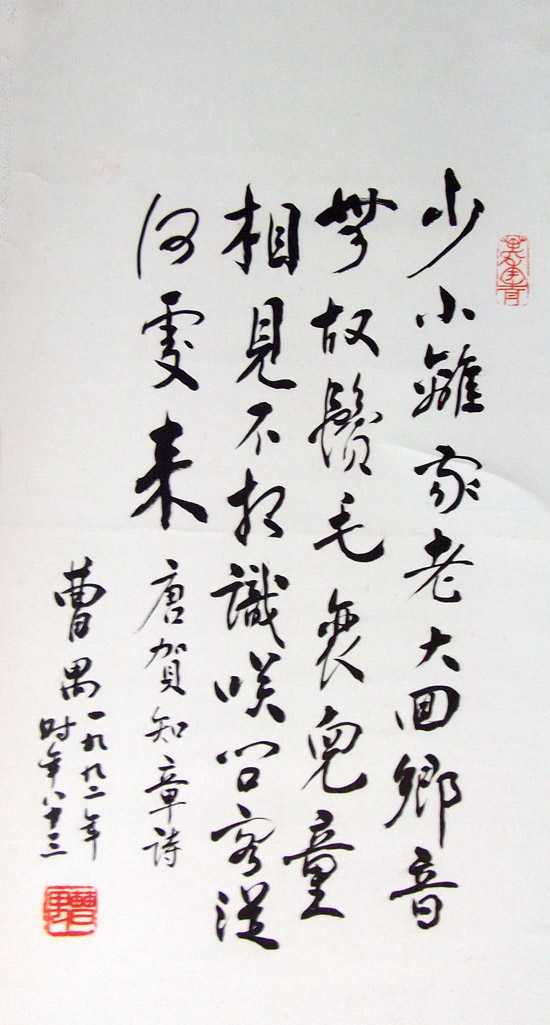 少小離家老大回鄉音
無故鬢毛衰兒童
相見不相識咲問客從
何處来唐賀知章詩
曹禺一九九二年
时年八十三